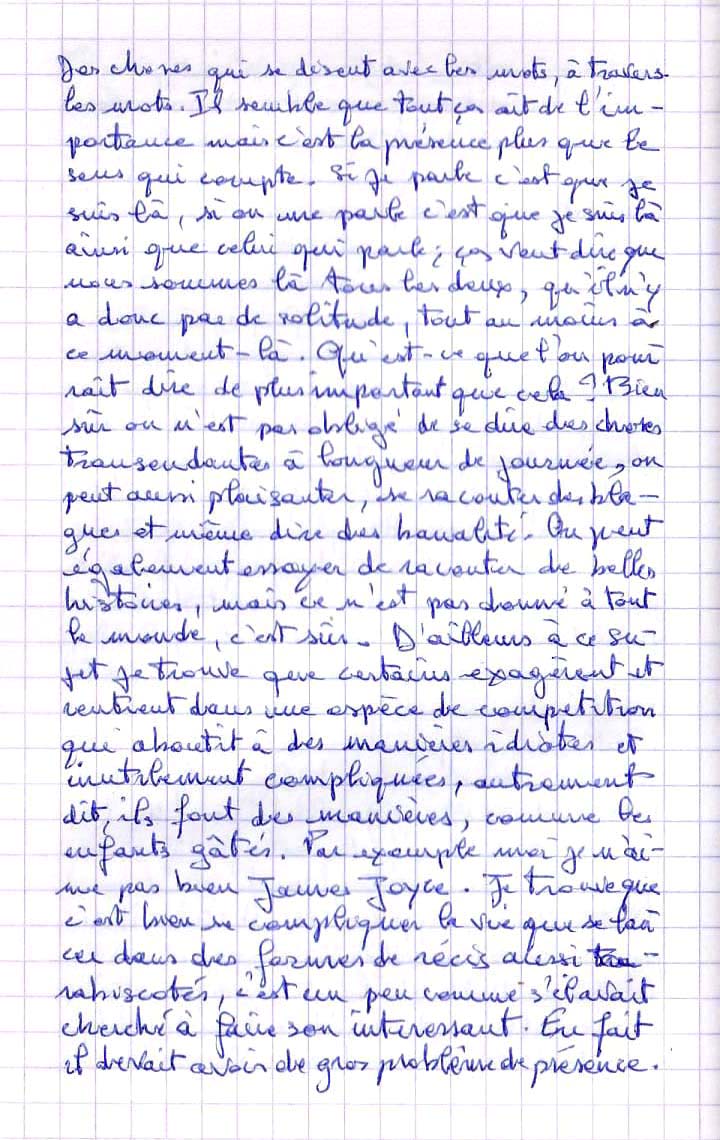 Des choses qui se disent avec les mots, à travers
les mots. Il semble que tout ça ait de l'im-
portance mais c'est la présence plus que le
sens qui compte. Si je parle c'est que je
suis là, si on me parle c'est que je suis là
ainsi que celui qui parle ; ça veut dire que
nous sommes là tous les deux, qu'il n'y
a donc pas de solitude, tout au moins à
ce moment-là. Qu'est-ce que l'on pour
rait dire de plus important que cela ? Bien
sûr on n'est pas obligé de se dire des choses
transendantes à longueur de journée, on
peut aussi plaisanter, se raconter des bla-
gues et même dire des banalité. On peut
également essayer de raconter de belles
histoires, mais ce n'est pas donné à tout
le monde, c'est sûr. D'ailleurs à ce su-
jet je trouve que certains exagèrent et
rentrent dans une espèce de compétition
qui aboutit à des manières idiotes et
inutilement compliquées, autrement
dit, ils font des manières, comme les
enfants gâtés. Par exemple moi je n'ai-
me pas bien James Joyce. Je trouve que
c'est bien se compliquer la vie que se lan
cer dans des formes de récis alessi
rabiscotés, c'est un peu comme s'il avait
cherché à faire son interessant. En fait
il devait avoir de gros problème de présence.